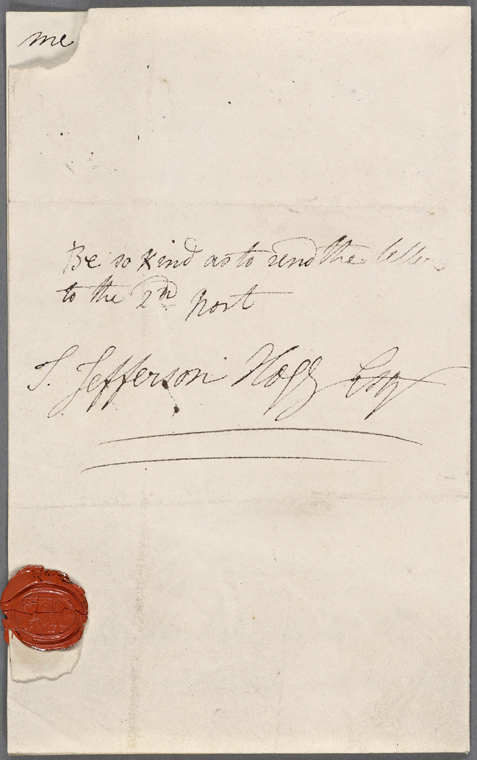 me
Be so kind as to send the letter
to the 2nd Post
T. Jefferson Hogg Esq